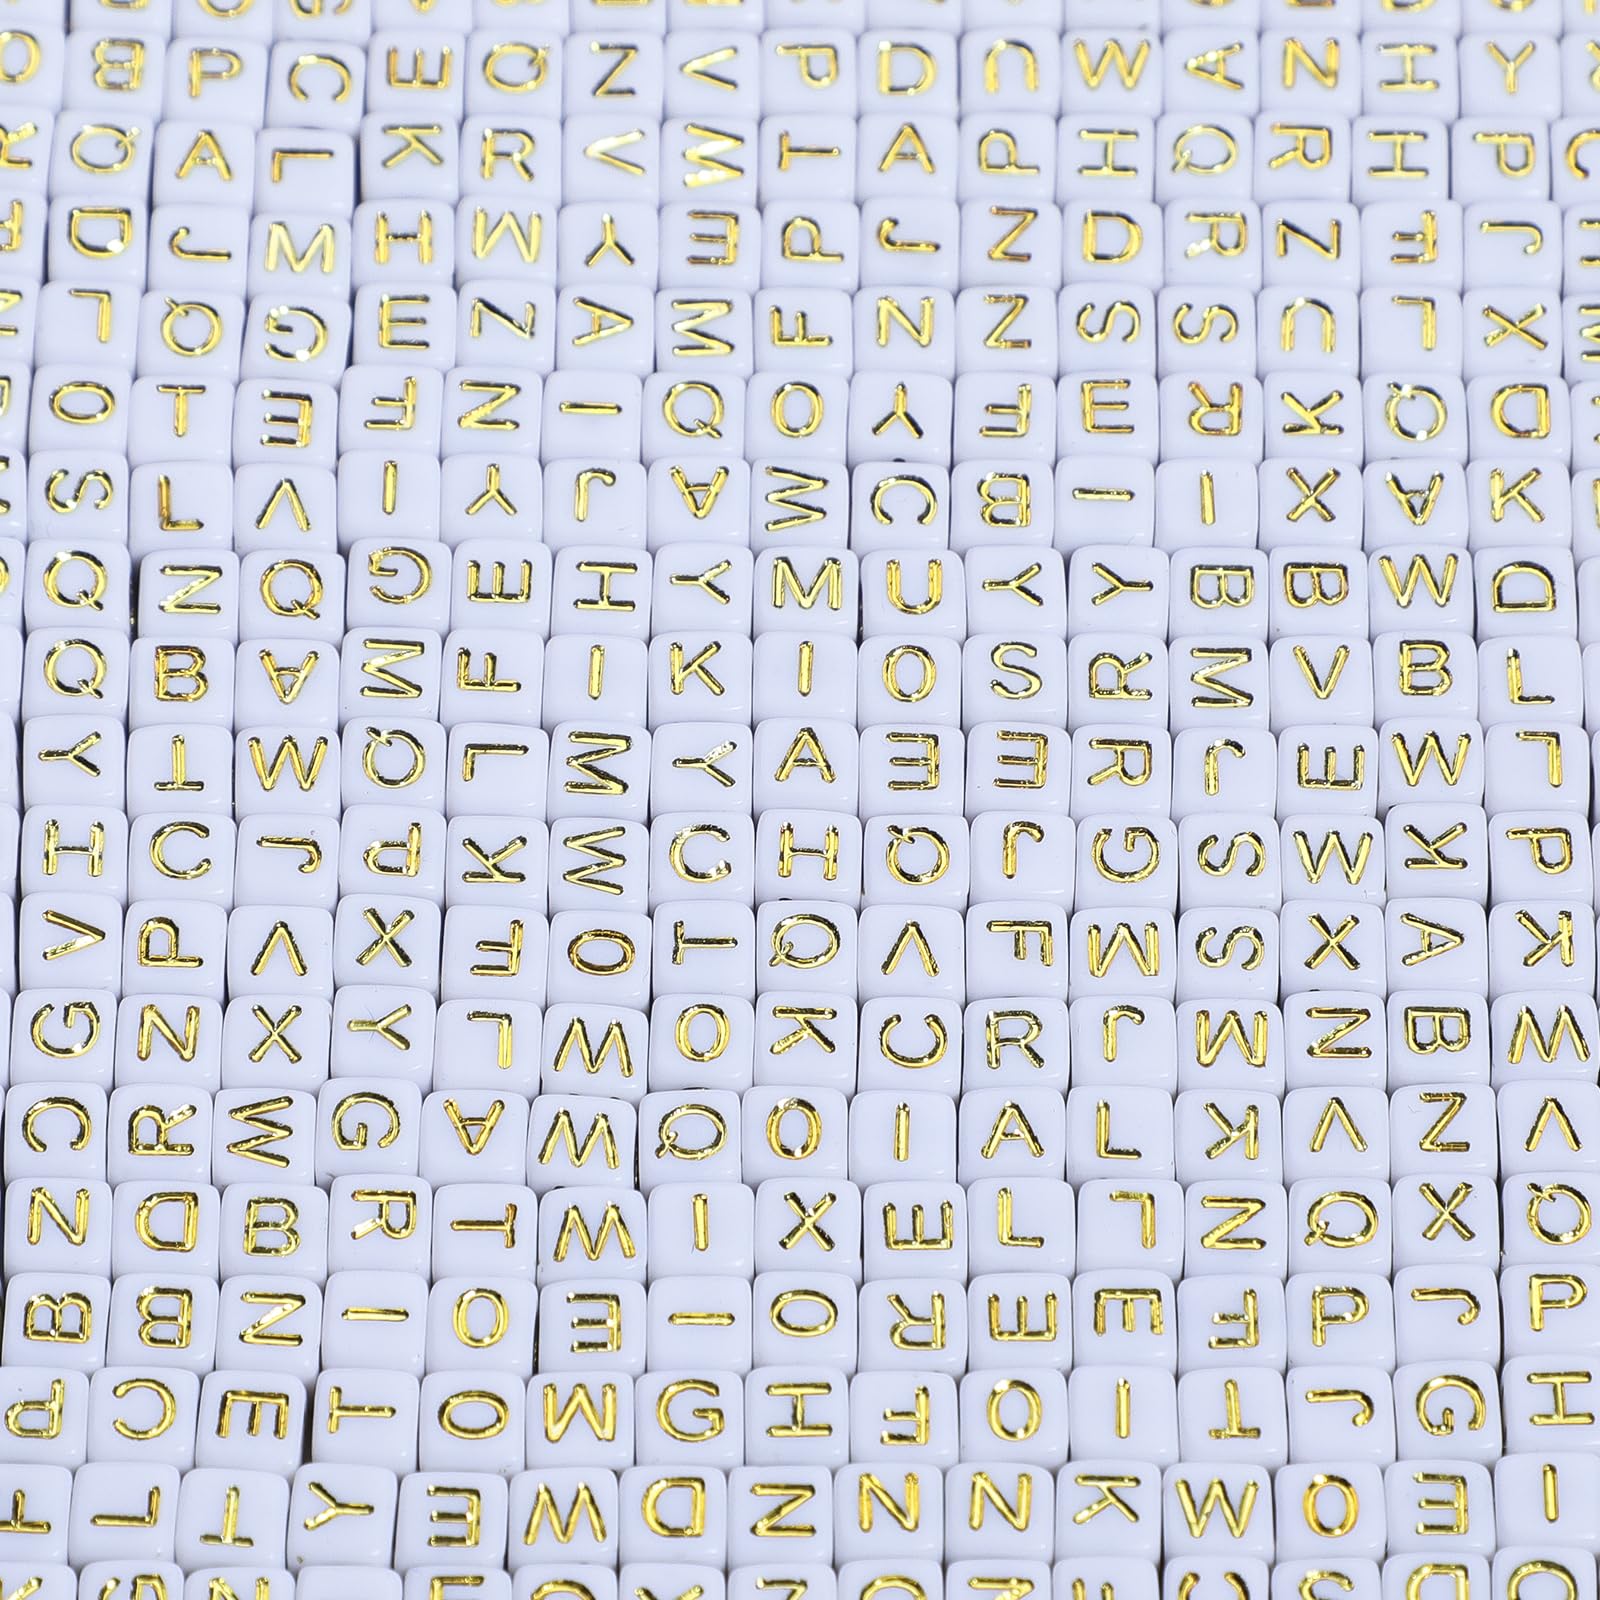 O B P C E Q Z V P D U W A N H Y
R Q A L K R V M T A P H Q R H P C
F D J M H M Y E P J N D R Z F J
L Q G E N A M F N N S S U L X
O T E F N I Q O Y F E R K Q D
S L V I Y J A M C B I I X A K
Q Z Q G E H Y M U Y Y B B W D
Q B A M F I K I O S R M V B L
Y T W Q L M Y A E E R J E W L
H C J P K M C H Q J G S W K P
V P V X F O T Q V F M S X A K
G Z X Y L W O K C R J M Z B W
C R M G A W Q O I A L K V Z V
N D B R T W I X E L L N Q X Q
B B Z I O E I O R E E F P J P
P C E T O M G H F O I T J G H
L T Y E W D Z N N K W O E I